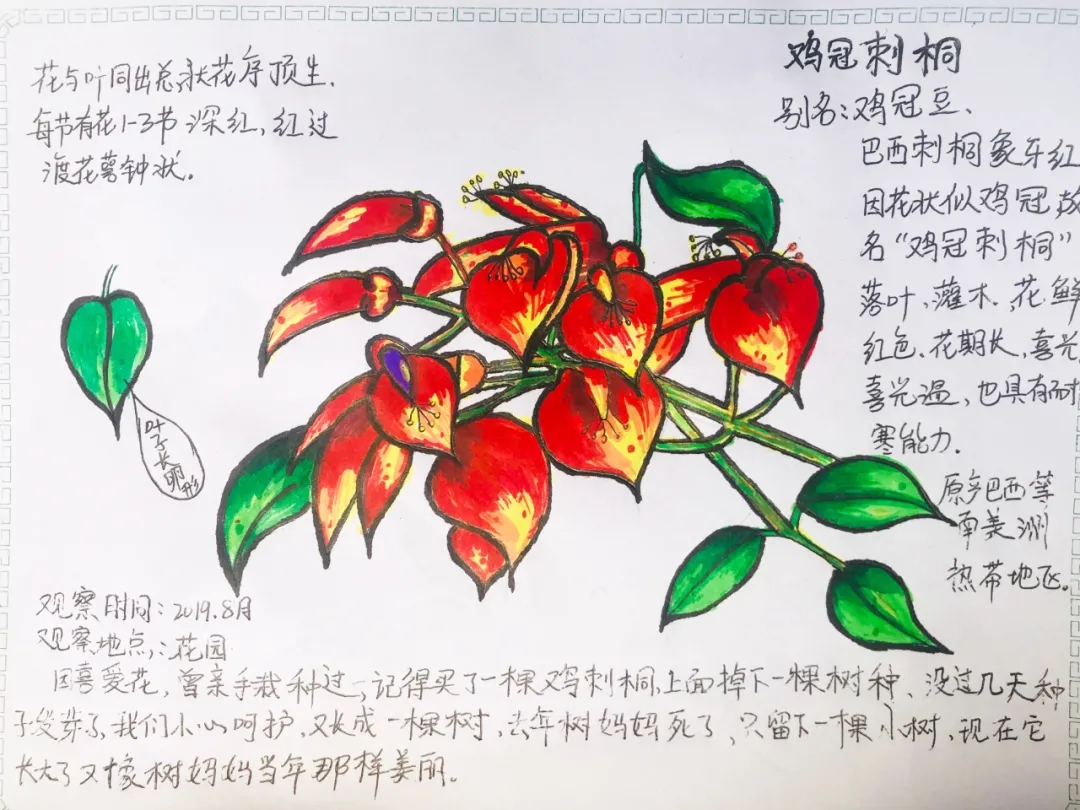 鸡冠刺桐
别名:鸡冠豆、
巴西刺桐象牙红
因花状似鸡冠故
名“鸡冠刺桐”
落叶,灌木,花鲜
红色、花期长,喜光
喜光温,也具有耐
寒能力.
原产巴西等
南美洲
热带地区.
花与叶同出总状花序顶生.
每节有花1-3节深红,红过
渡花萼钟状.
叶子长卵形
观察时间:2019.8月
观察地点,:花园
因喜爱花,曾亲手栽种过,记得买了一棵鸡刺桐,上面掉下一棵树种、没过几天种
子发芽了,我们小心呵护,又长成一棵树,去年树妈妈死了,只留下一棵小树,现在它
长大了又像树妈妈当年那样美丽。